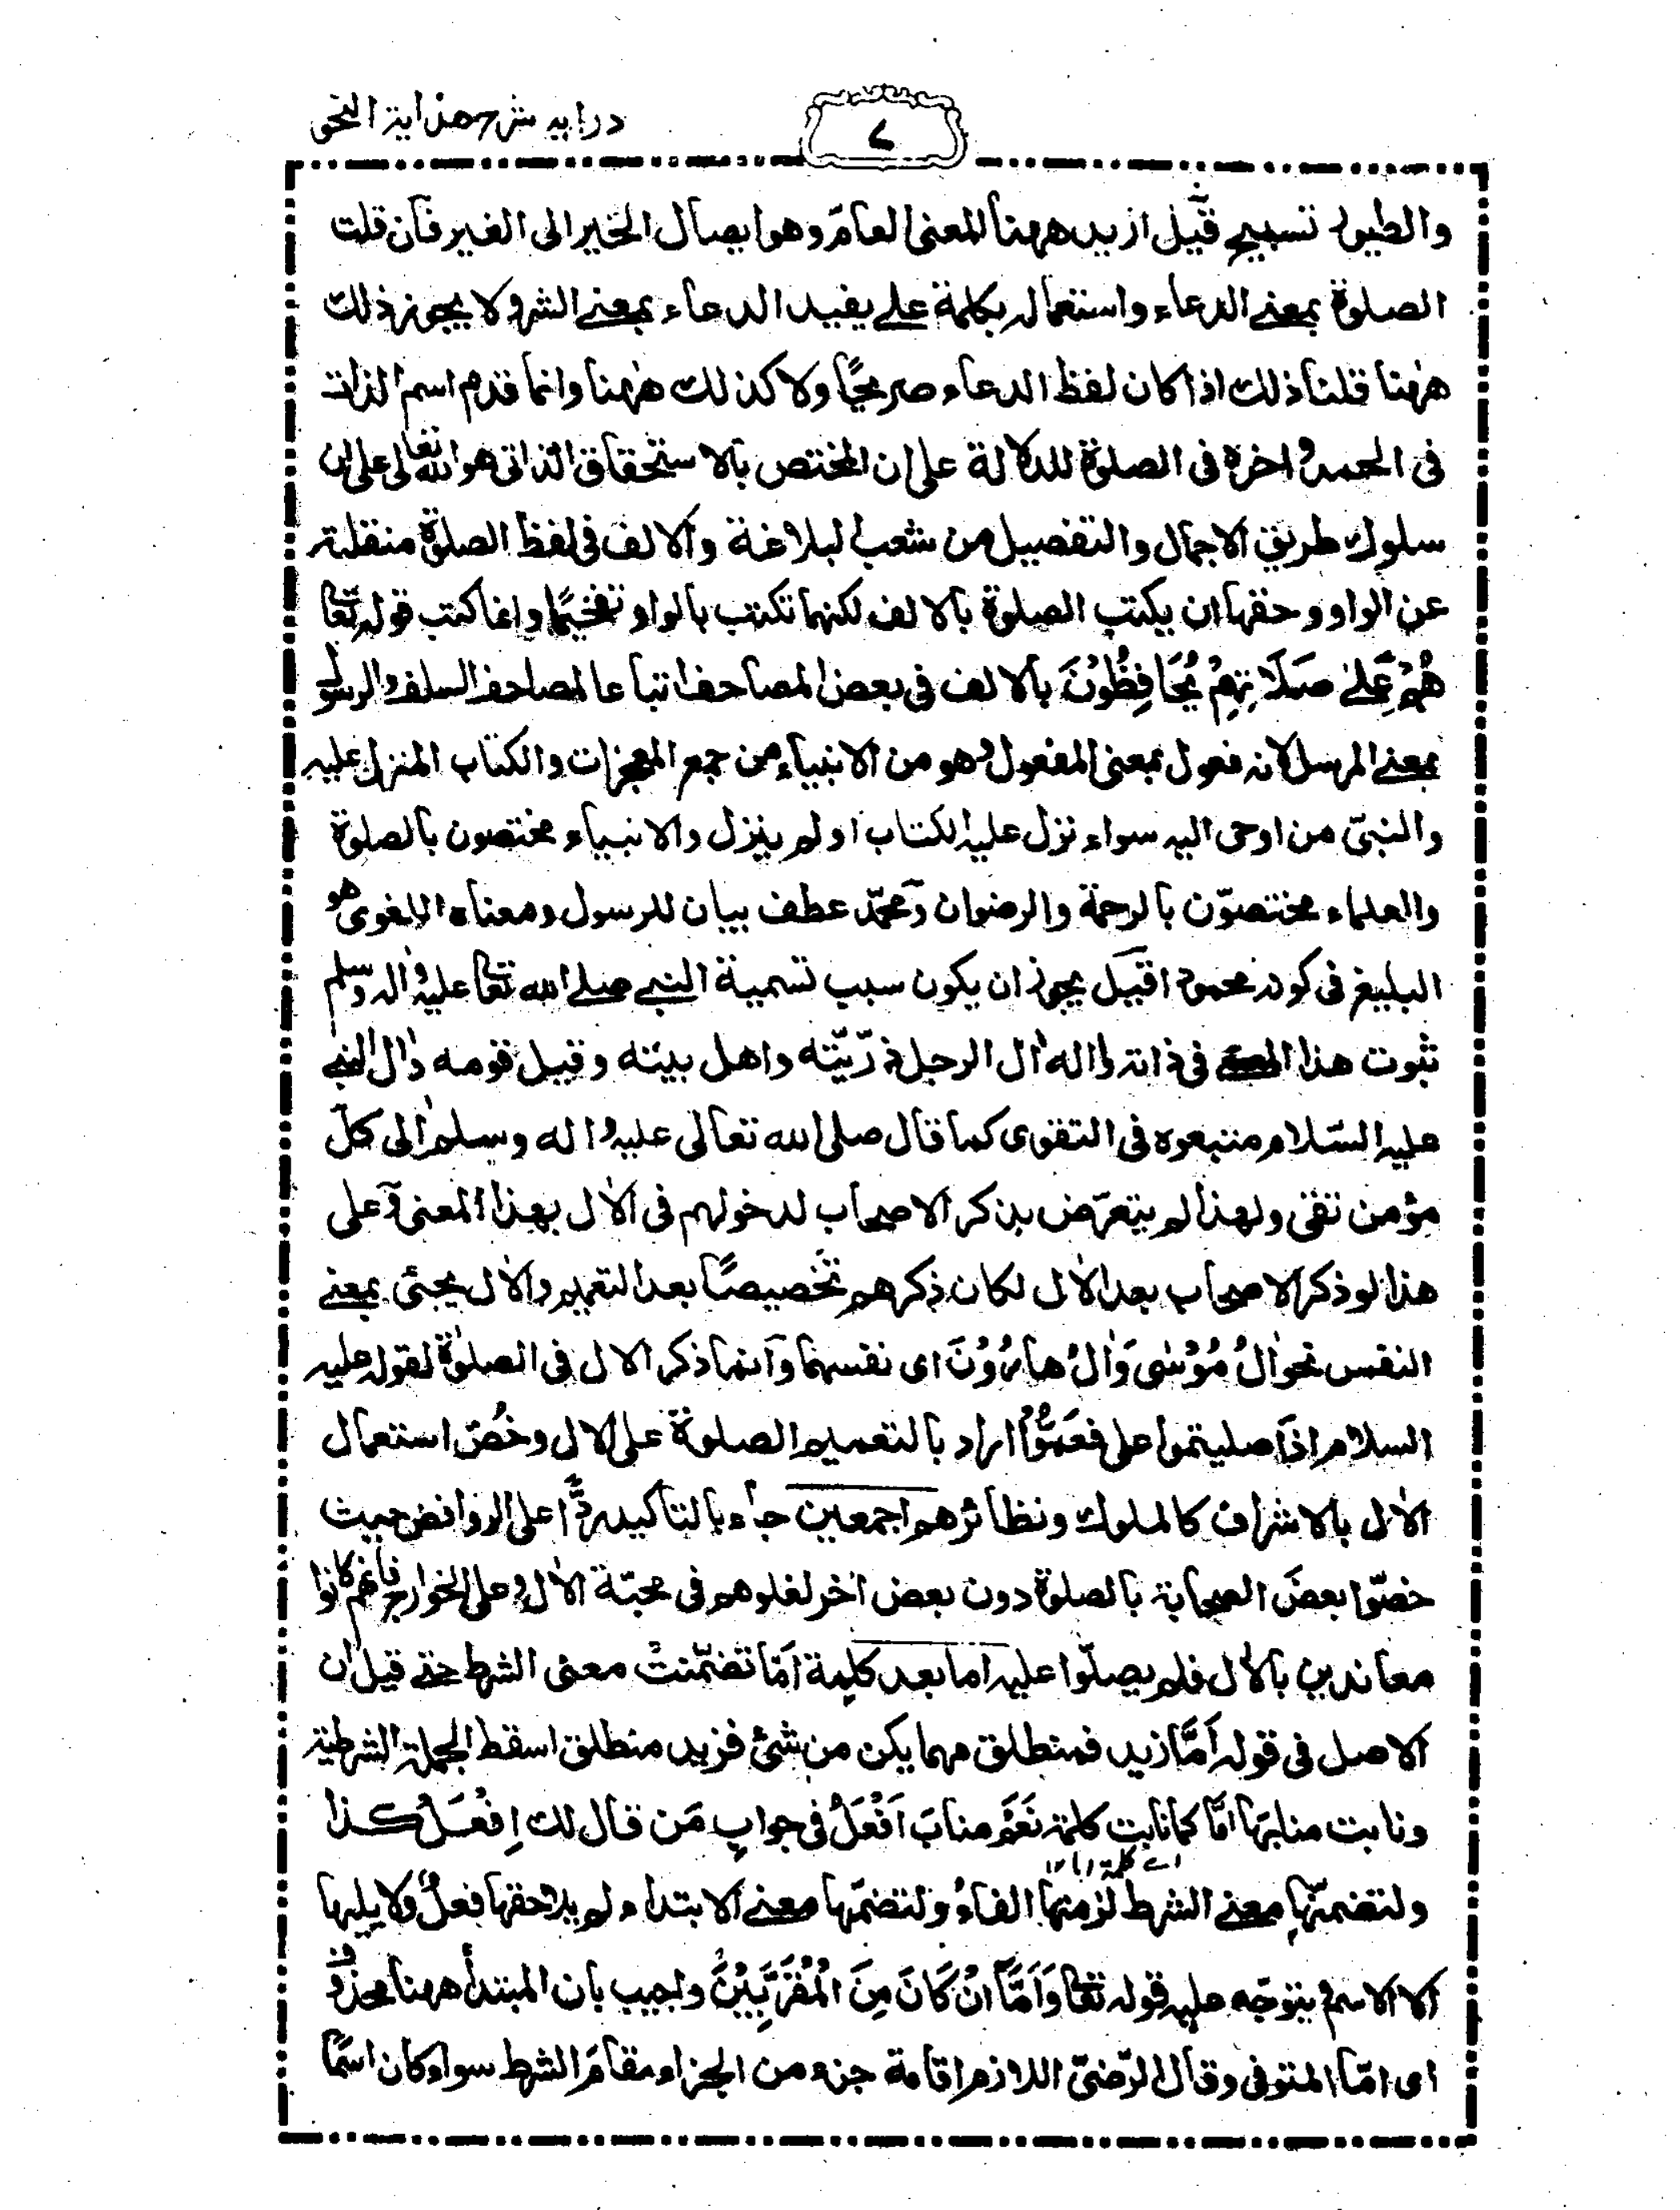 درایہ شرح هداية النحو
٧
والطيور تسبيح قيل اريد ههنا المعنى العام وهو ايصال الخير الى الغير فان قلت
الصلوة بمعنى الدعاء واستعماله بكلمة على يفيد الدعاء بمعنى الشر ولا يجوز ذلك
ههنا قلنا ذلك اذا كان لفظ الدعاء صريحًا ولا كذلك ههنا وانما قدم اسم الذات
فى الحمد واخره فى الصلوة للدلالة على ان المختص بالاستحقاق الذاتى هو الله تعالى على ان
سلوك طريق الاجمال والتفصيل من شعب البلاغة والالف فى لفظ الصلوة منقلبة
عن الواو وحقها ان يكتب الصلوة بالالف لكنها تكتب بالواو تفخيمًا وانما كتب قوله تعا
هُمْ عَلٰى صَلَاتِهِمْ يُحَافِظُوْنَ بالالف فى بعض المصاحف اتباعا لمصاحف السلف والرسول
بمعنى المرسل لانه فعول بمعنى المفعول وهو من الانبياء من جمع المعجزات والكتاب المنزل عليه
والنبىّ من اوحى اليه سواء نزل عليه الكتاب او لم ينزل والانبياء مختصون بالصلوة
والعلماء مختصوّن بالرحمة والرضوان ومحمّد عطف بيان للرسول ومعناه اللغوى هو
البليغ فى كونه محمودا قيل يجوز ان يكون سبب تسمية النبى صلى الله تعا عليه واله وسلم
ثبوت هذا المعنى فى ذاته واله ال الرجل ذرّيّته واهل بيته وقيل قومه وال النبى
عليه السّلام متبعوه فى التقوى كما قال صلى الله تعالى عليه واله وسلم الى كلّ
مؤمن تقى ولهذا لم يتعرّض بذكر الاصحاب لدخولهم فى الال بهذا المعنى وعلى
هذا لو ذكر الاصحاب بعد الال لكان ذكرهم تخصيصًا بعد التعميم والال يجئ بمعنى
النفس نحو اٰلُ مُوْسٰى وَاٰلُ هَارُوْنَ اى نفسهما وانما ذكر الال فى الصلوة لقوله عليه
السلام اذا صليتموا على فعَمِّمُوْا اراد بالتعميم الصلوة على الال وخُصّ استعمال
الال بالاشراف كالملوك ونظائرهم اجمعين جاء بالتاكيد ردًّا على الروافض حيث
خصّوا بعضَ الصحابة بالصلوة دون بعض اخر لغلوهم فى محبّة الال وعلى الخوارج فانهم كانوا
معاندين بالال فلم يصلّوا عليه اما بعد كلمة امّا تضمّنتْ معنى الشرط حتى قيل ان
الاصل فى قوله اَمَّا زيد فمنطلق مهما يكن من شئ فزيد منطلق اسقط الجملة الشرطية
ونابت منابها امّا كما نابت كلمة نَعَمْ منابَ اَفْعَلُ فى جواب مَن قال لك اِفْعَلْ كذا
اے کلمۃ اما ۱۲
ولتضمنّها معنى الشرط لزمتها الفاءُ ولتضمّنها معنى الابتداء لم يلاحقها فعلٌ ولا يليها
الا الاسم ويتوجّه عليه قوله تعا وَاَمَّا اِنْ كَانَ مِنَ الْمُقَرَّبِيْنَ واجيب بان المبتدأ ههنا محذوف
اى امّا المتوفى وقال الرّضىّ اللازم اقامة جزء من الجزاء مقامَ الشرط سواء كان اسمًا